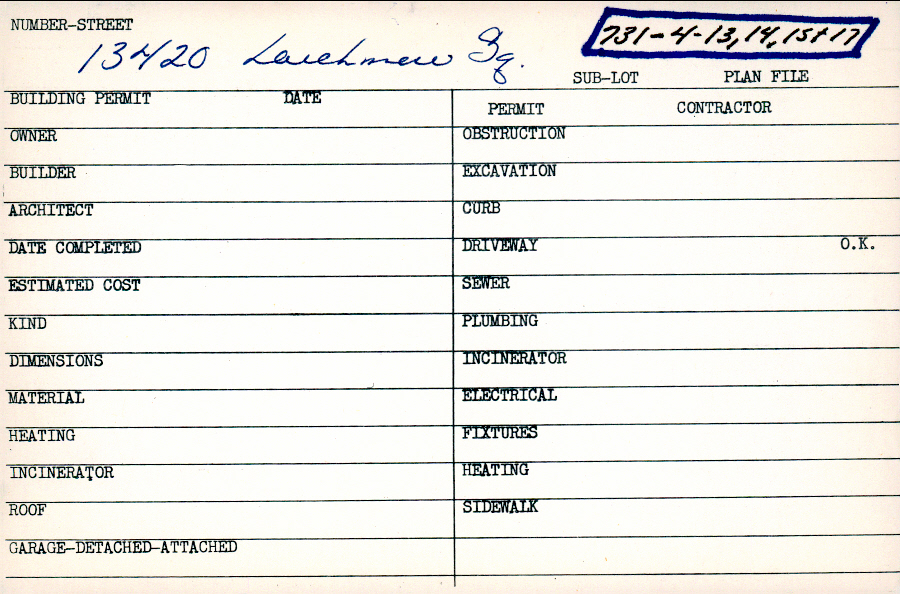 NUMBER-STREET
13420 Larchmere Sq.
731-4-13,14,15+17
SUB-LOT PLAN FILE
BUILDING PERMIT DATE
PERMIT CONTRACTOR
OWNER
OBSTRUCTION
BUILDER
EXCAVATION
ARCHITECT
CURB
DATE COMPLETED
DRIVEWAY O.K.
ESTIMATED COST
SEWER
KIND
PLUMBING
DIMENSIONS
INCINERATOR
MATERIAL
ELECTRICAL
HEATING
FIXTURES
INCINERATOR
HEATING
ROOF
SIDEWALK
GARAGE-DETACHED-ATTACHED